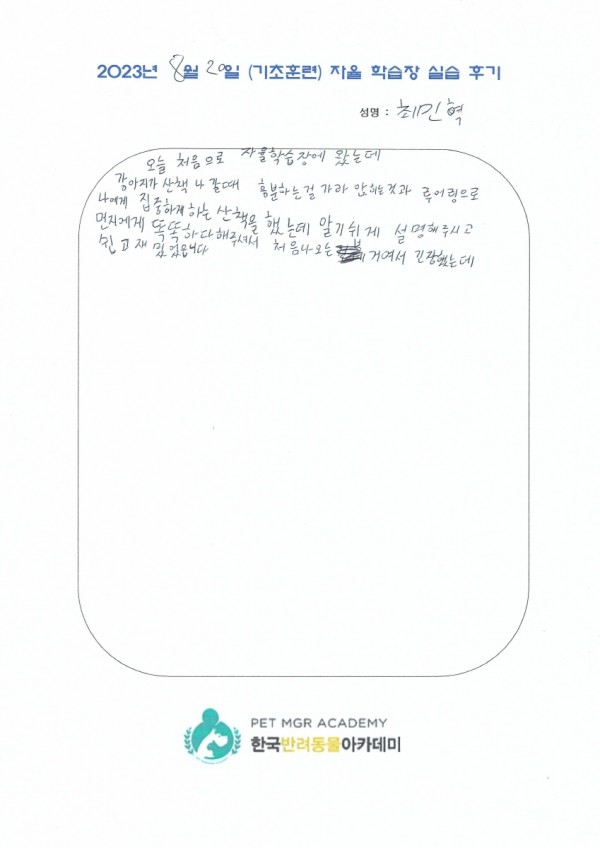 2023년 8월 20일 (기초훈련) 자율 학습장 실습 후기
성명 : 최민혁
오늘 처음으로 자율학습장에 왔는데
강아지가 산책 나갈때 흥분하는걸 가라앉히는것과 루어링으로
나에게 집중하게하는 산책을 했는데 알기쉽게 설명해주시고
먼지에게 똑똑하다해주셔서 처음나오는 거여서 긴장했는데
쉽고재밌었습니다
PET MGR ACADEMY
한국반려동물아카데미